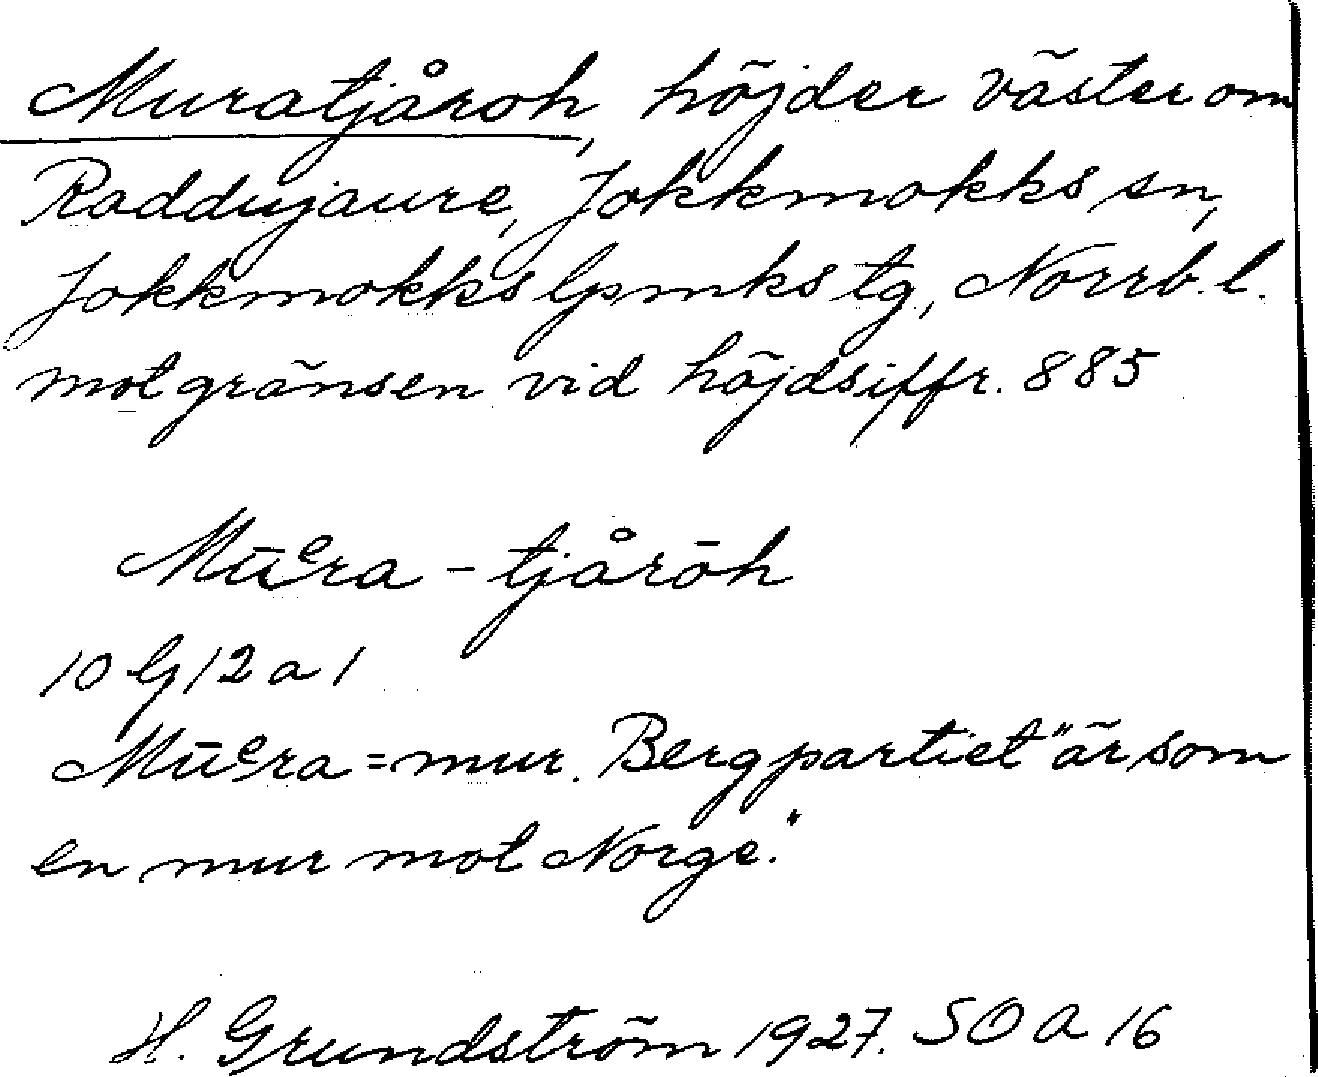 Muratjåroh, höjder väster om
Raddujaure, Jokkmokks sn,
Jokkmokks lpmks tg, Norrb. l.
mot gränsen vid höjdsiffr. 885
Mūᵉra - tjårōh
10 G 12 a 1
Mūᵉra = mur. Bergpartiet "är som
en mur mot Norge."
H. Grundström 1927. SOA 16